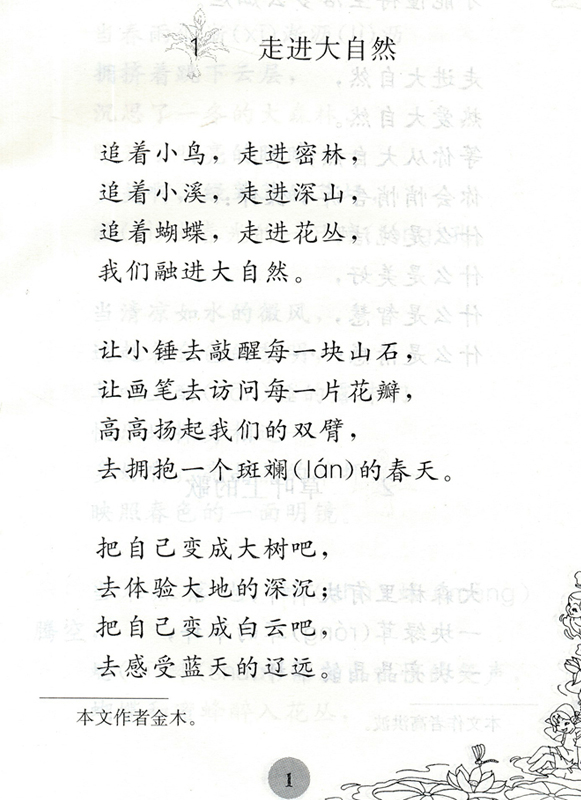 1 走进大自然
追着小鸟，走进密林，
追着小溪，走进深山，
追着蝴蝶，走进花丛，
我们融进大自然。
让小锤去敲醒每一块山石，
让画笔去访问每一片花瓣，
高高扬起我们的双臂，
去拥抱一个斑斓(lán)的春天。
把自己变成大树吧，
去体验大地的深沉；
把自己变成白云吧，
去感受蓝天的辽远。
本文作者金木。
1